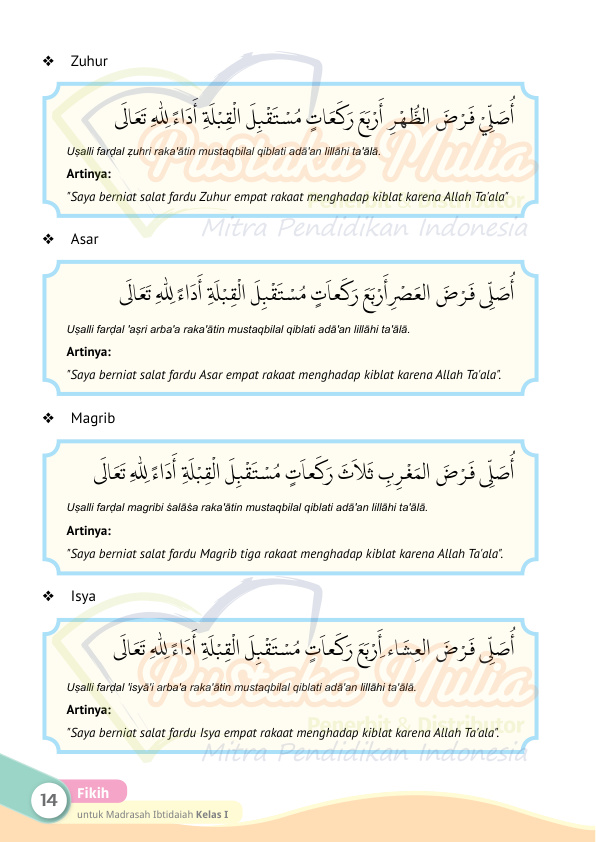 ❖ Zuhur
أُصَلِّيْ فَرْضَ الظُّهْرِ أَرْبَعَ رَكَعَاتٍ مُسْتَقْبِلَ الْقِبْلَةِ أَدَاءً لِلّٰهِ تَعَالَى
Uṣalli farḍal ẓuhri raka'ātin mustaqbilal qiblati adā'an lillāhi ta'ālā.
Artinya:
"Saya berniat salat fardu Zuhur empat rakaat menghadap kiblat karena Allah Ta'ala"
Pustaka Mulia
Penerbit & Distributor
Mitra Pendidikan Indonesia
❖ Asar
أُصَلِّى فَرْضَ العَصْرِأَرْبَعَ رَكَعاَتٍ مُسْتَقْبِلَ الْقِبْلَةِ أَدَاءً لِلّٰهِ تَعَالَى
Uṣalli farḍal 'aṣri arba'a raka'ātin mustaqbilal qiblati adā'an lillāhi ta'ālā.
Artinya:
"Saya berniat salat fardu Asar empat rakaat menghadap kiblat karena Allah Ta'ala".
❖ Magrib
أُصَلِّى فَرْضَ المَغْرِبِ ثَلاَثَ رَكَعاَتٍ مُسْتَقْبِلَ الْقِبْلَةِ أَدَاءً لِلّٰهِ تَعَالَى
Uṣalli farḍal magribi ṡalāṡa raka'ātin mustaqbilal qiblati adā'an lillāhi ta'ālā.
Artinya:
"Saya berniat salat fardu Magrib tiga rakaat menghadap kiblat karena Allah Ta'ala".
❖ Isya
أُصَلِّى فَرْضَ العِشَاء ِأَرْبَعَ رَكَعاَتٍ مُسْتَقْبِلَ الْقِبْلَةِ أَدَاءً لِلّٰهِ تَعَالَى
Uṣalli farḍal 'isyā'i arba'a raka'ātin mustaqbilal qiblati adā'an lillāhi ta'ālā.
Artinya:
"Saya berniat salat fardu Isya empat rakaat menghadap kiblat karena Allah Ta'ala".
Pustaka Mulia
Penerbit & Distributor
Mitra Pendidikan Indonesia
14 Fikih
untuk Madrasah Ibtidaiah Kelas I